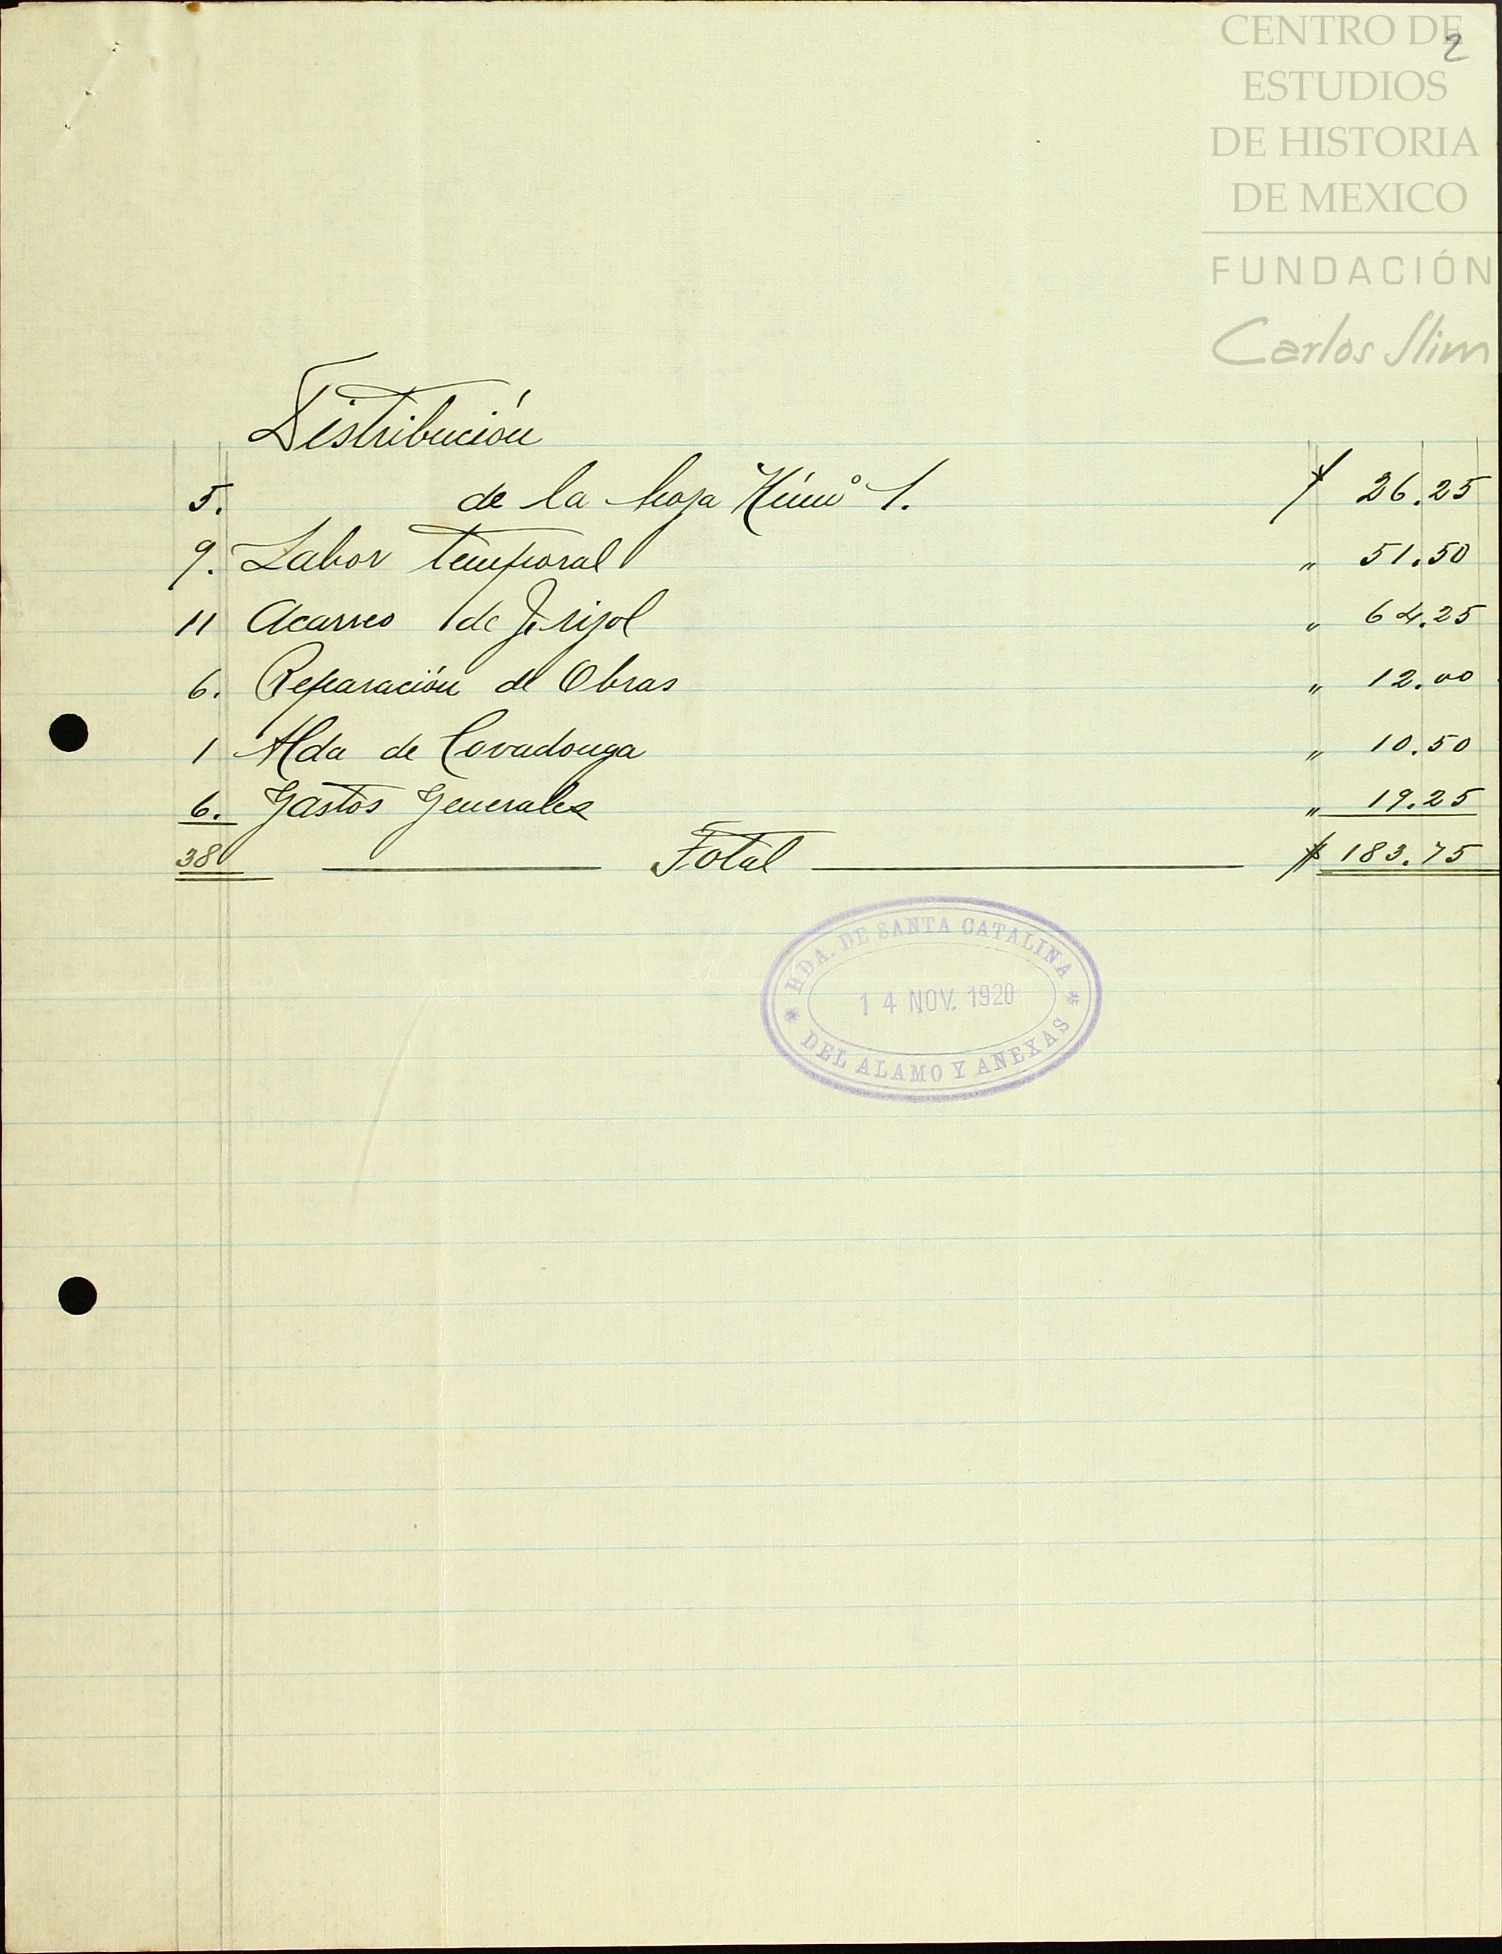 CENTRO DE
2
ESTUDIOS
DE HISTORIA
DE MEXICO
FUNDACIÓN
Carlos Slim
Distribución
5. de la hoja Núm° 1. $ 26.25
9. Labor temporal " 51.50
11 Acarreo de Frijol " 64.25
6. Reparación de Obras " 12.00
1 Hda de Covadonga " 10.50
6. Gastos Generales " 19.25
38 Total $ 183.75
HDA. DE SANTA CATALINA
14 NOV. 1920
DEL ALAMO Y ANEXAS